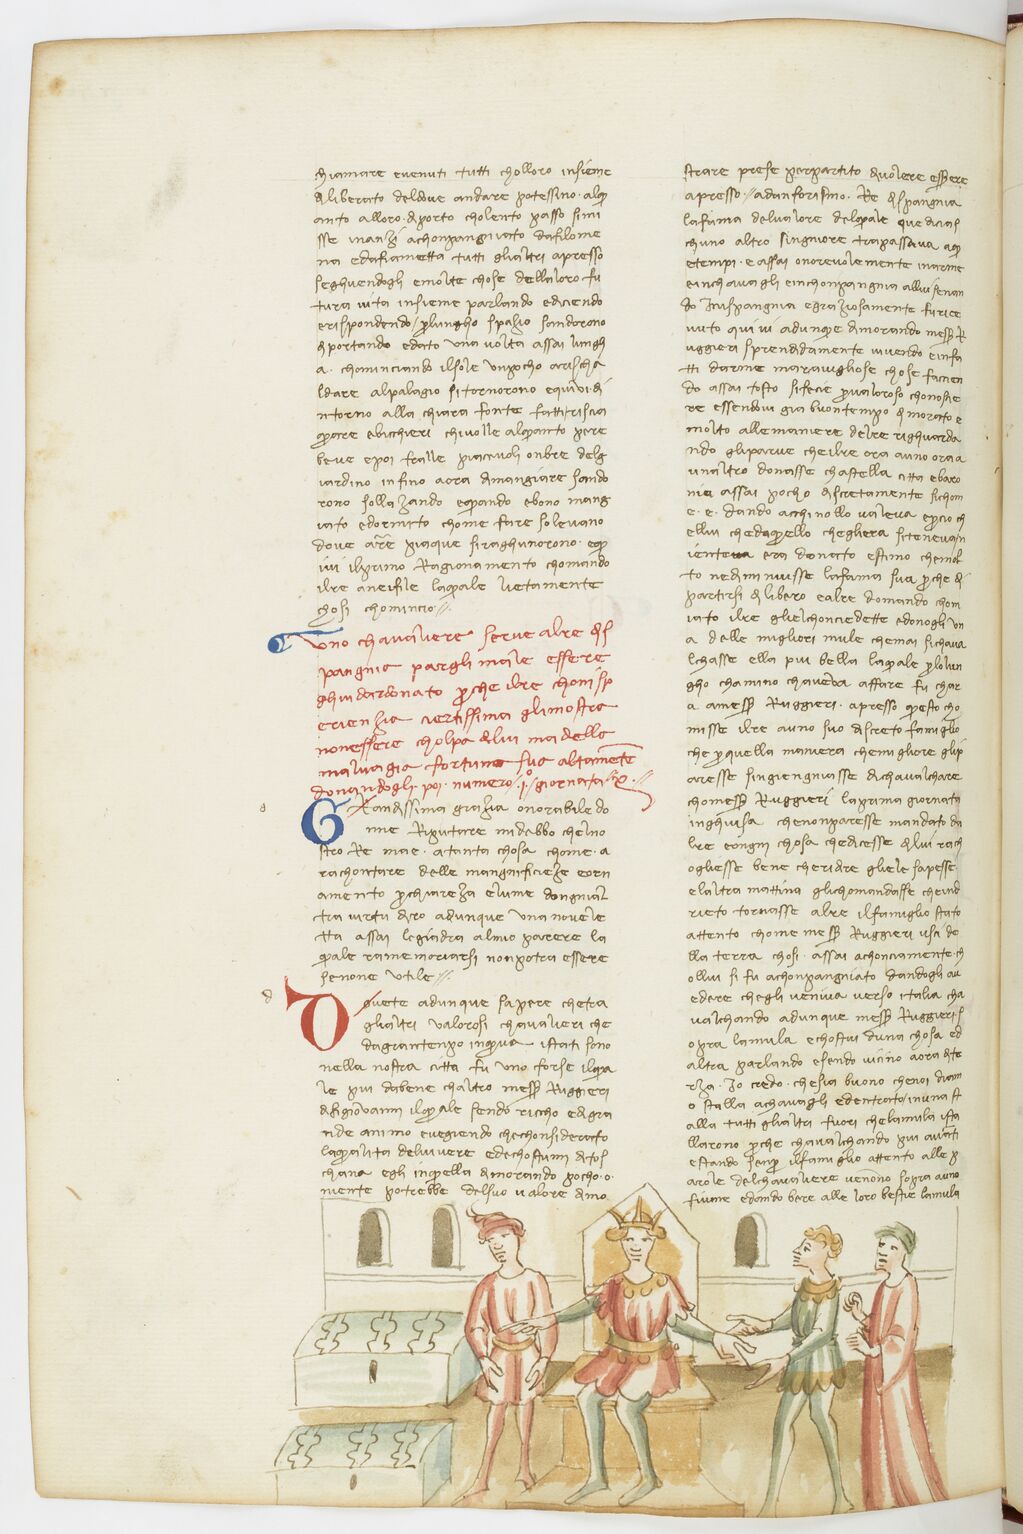 chiamare e venuti tutti choloro insieme
diliberato del dove andare potessino alqu
anto alloro diporto cho lento passo simi
sse inanzi achonpangniato da filome
na e da fiametta tutti gli altri apresso
seghuendogli e molte chose della loro fu
tura vita insieme parlando e diciendo
e rispondendo per lungho spazio sandorono
diportando e dato una volta assai lungh
a chominciando il sole un pocho a rischa
ldare al palagio si tornorono e quivi di
ntorno alla chiara fonte fatti riscia
quare e bicchieri chi volle alquanto bere
beve e poi fralle piacevoli onbre del g
iardino infino a ora di mangiare sando
rono sollazando e quando ebono mang
iato e dormito chome fare solevano
dove a re piaque si raghunorono e qu
ivi il primo ragionamento chomando
il re a neifile la quale lietamente
chosi chomincio
Uno chavaliere serve al re di s
pangnia pargli male essere
ghuidardonato perche il re chon isp
erienzia ciertissima gli mostra
non essere cholpa di lui ma della
malvagia fortuna sua altamente
donandogli poi numero i giornata x
Grandissima grazia onorabile do
nne riputare mi debbo che il no
stro re me a tanta chosa chome a
rachontare della mangnificienza e orn
amento per chiareza e lume dongni al
tra virtu diro adunque una novele
tta assai legiadra al mio parere la
quale ramemorarsi non potra essere
se none utile
Dovete adunque sapere che tra
gli altri valorosi chavalieri che
da gran tenpo in qua istati sono
nella nostra citta fu uno forse il qua
le piu dabene chaltro messer Ruggieri
di giovanni il quale sendo riccho e di gra
nde animo e vegiendo che chonsiderato
la qualita del vivere e de chostumi di tos
chana egli in quella dimorando pocho o
niente potrebbe del suo valore dimo
strare prese per partito di volere essere
apresso a danforisimo Re di spangnia
la fama del valore del quale quella di cias
chuno altro singniore trapassava a qu
e tempi e assai onorevolemente in arme
e in chavagli e in chonpangnia a llui senan
do in ispangnia e graziosamente fu rice
vuto quivi adunque dimorando messer R
uggieri sprendidamente vivendo e in fa
tti darme maravigliose chose facien
do assai tosto si fecie per valoroso chonoscie
re essendovi gia buon tempo dimorato e
molto alle maniere del re righuarda
ndo gli parve che il re ora a uno ora a
un altro donasse chastella citta e baro
nie assai pocho discretamente si chom
e dando a cchi nollo valeva e percio ch
e llui che da quello che gli era si teneva n
iente era donato estimo che mol
to ne diminuisse la fama sua perche di
partirsi dilibero e al re domando chom
iato il re gliel chonciedette e donogli un
a delle migliori mule che mai si chava
lchasse e lla piu bella la quale per lo lun
gho chamino chaveva affare fu char
a a messer Ruggieri apresso questo cho
misse il re a uno suo discreto famiglio
che per quella maniera che migliore gli p
aresse singiengniasse di chavalchare
cho messer Ruggieri la prima giornata
in ghuisa che non paresse mandato da
l re e ongni chosa che dicesse di lui rach
ogliesse bene che ridire gliele sapesse
e laltra mattina gli chomandasse che ind
rieto tornasse al re il famiglio stato
attento chome messer Ruggieri usci de
lla terra chosi assai aconciamente ch
o llui si fu achonpangniato dandogli a v
edere chegli veniva verso italia cha
valchando adunque messer Ruggieri s
opra la mula e chostui duna chosa e d
altra parlando esendo vicino a ora di te
rza Io credo che sia buono che noi diam
o stalla a chavagli ed entrato in una st
alla tutti gli altri fuori che la mula ista
llarono perche chavalchando piu avanti
e stando senpre il famiglio attento alle p
arole del chavaliere venono sopra a uno
fiume e dando bere alle loro bestie la mula
g
d